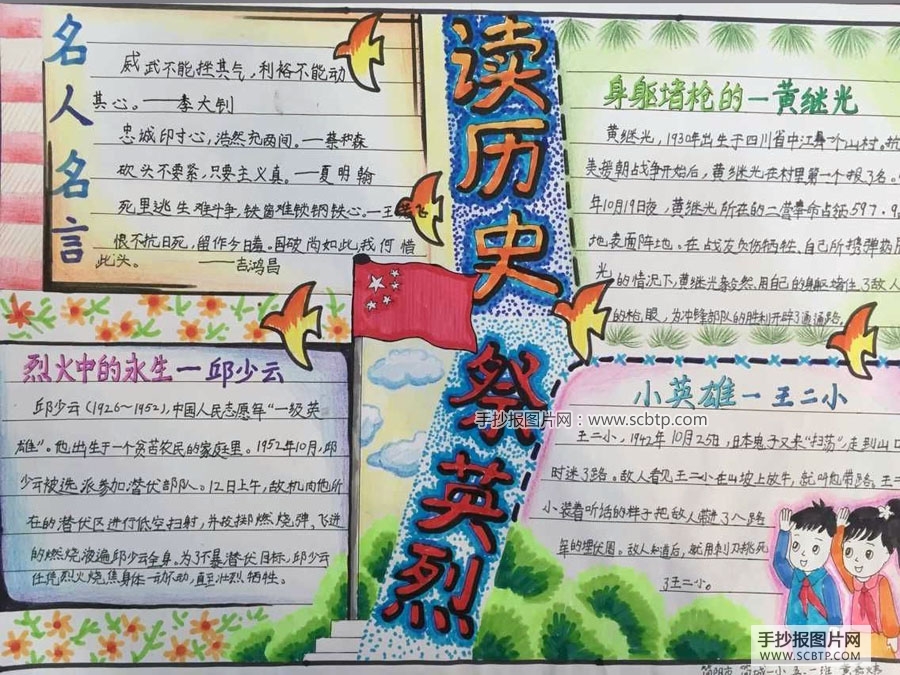 读历史 祭英烈
名人名言
威武不能挫其气，利裕不能动
其心。——李大钊
忠诚印寸心，浩然充两间。——蔡和森
砍头不要紧，只要主义真。——夏明翰
死里逃生难斗争，铁窗难锁钢铁心。—王若飞
恨不抗日死，留作今日羞。国破尚如此，我何惜
此头。——吉鸿昌
身躯堵枪的—黄继光
黄继光，1930年出生于四川省中江县一个山村。抗
美援朝战争开始后，黄继光在村里第一个报了名。
年10月19日夜，黄继光所在的二营奉命占领597.9
地表面阵地。在战友负伤牺牲，自己所携弹药
光
的情况下，黄继光毅然用自己的身躯堵住了敌人
的枪眼，为冲锋部队的胜利开辟了通路。
烈火中的永生—邱少云
邱少云（1926～1952），中国人民志愿军“一级英
雄”。他出生于一个贫苦农民的家庭里。1952年10月，邱
少云被选派参加潜伏部队。12日上午，敌机向他所
在的潜伏区进行低空扫射，并投掷燃烧弹，飞迸
的燃烧液遍邱少云全身。为了不暴潜伏目标，邱少云
任凭烈火烧焦身体一动不动，直至壮烈牺牲。
小英雄—王二小
王二小，1942年10月25日，日本鬼子又来“扫荡”，走到山口
时迷了路。敌人看见王二小在山坡上放牛，就叫他带路。王二
小装着听话的样子把敌人带进了八路
军的埋伏圈。敌人知道后，就用刺刀挑死
了王二小。
手抄报图片网：www.scbtp.com
手抄报图片网
WWW.SCBTP.COM
简阳市 简城一小 五.一班